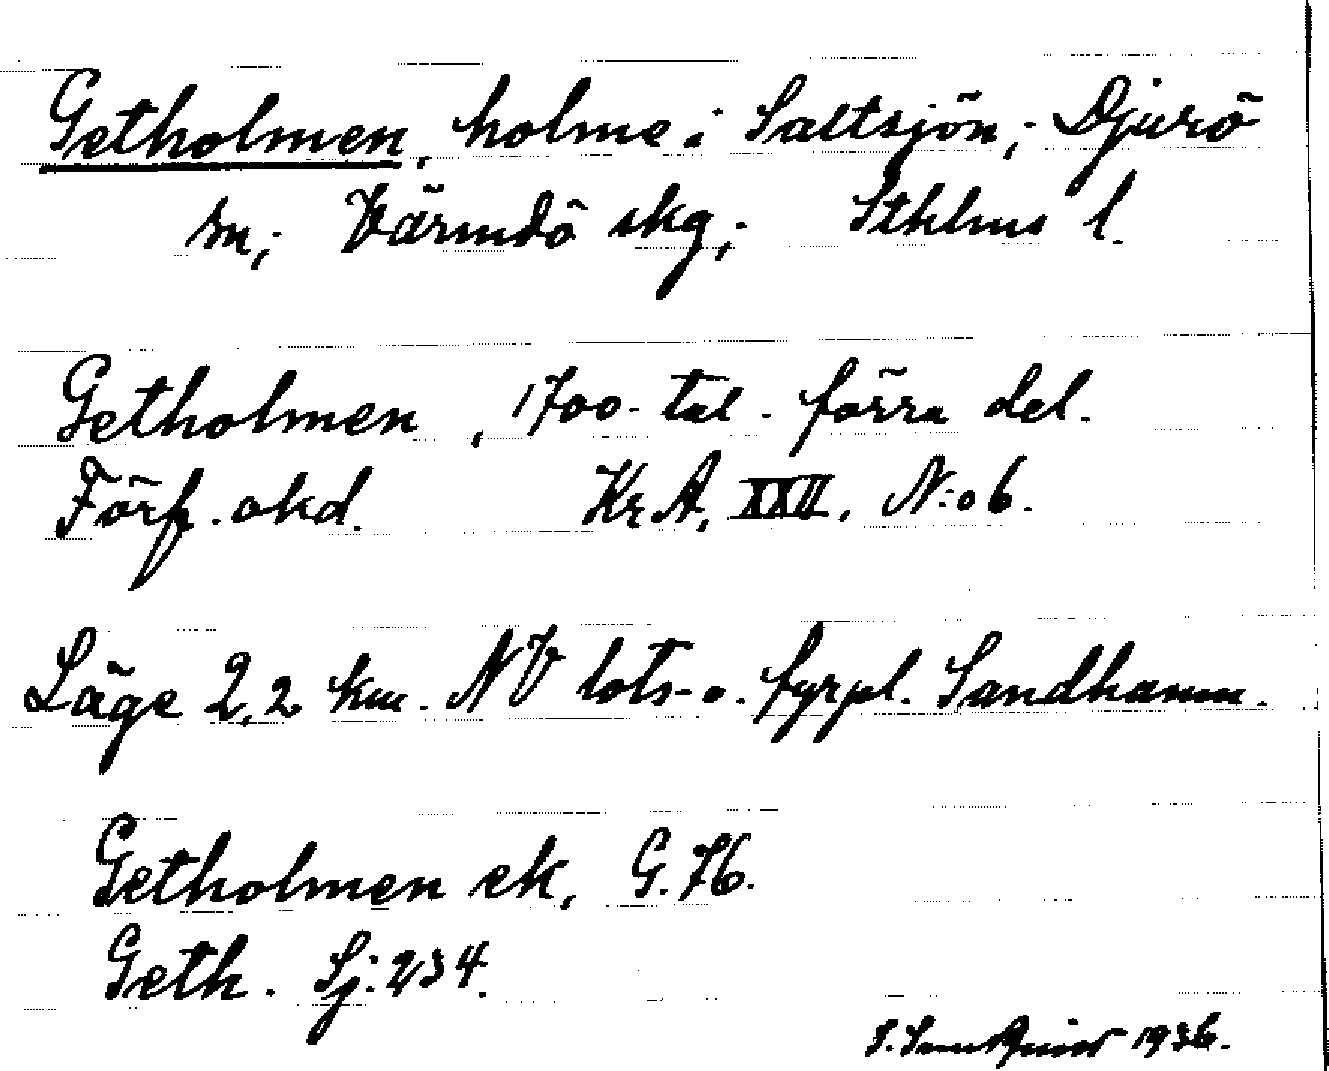 Getholmen, holme i Saltsjön; Djurö
sn; Värmdö skg; Sthlms l.
Getholmen, 1700-tal. förra del.
Förf. okd. Kr A, XXII, N:o 6.
Läge 2,2 km. NV lots- o. fyrpl. Sandhamn.
Getholmen ek, G. 76.
Geth. Sj: 234.
1936.